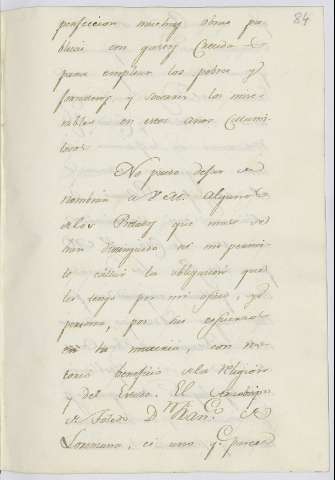 84
perfeccion muchas obras pu-
blicas con que se
para emplear los pobres y
jornaleros, y socorrer los mise-
rables en estos años calami-
tosos.
No puedo dejar de
nombrar a V.M. algunos
de los Prelados que mas se
han distinguido ni me permi-
te callar la obligacion que
les tengo por mi oficio, y
persona, por sus esfuerzos
en la materia, con no-
torio beneficio de la Religion
y del Estado. El Arzobispo
de Toledo Dn. Fran.co
Lorenzana, es uno